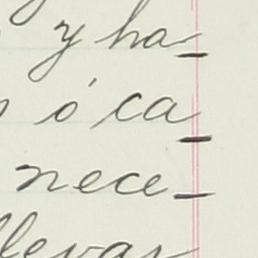 y ha-
ó ca-
nece-
llevar